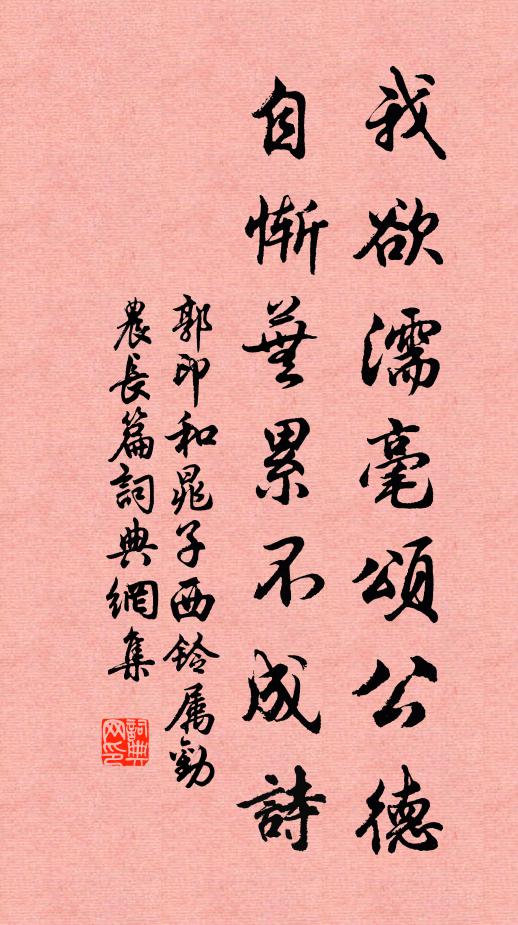 我欲濡毫頌公德
自慚蕪累不成詩
郭印和晁子西鈴屬勸
農長篇詞典網集
詞典网印